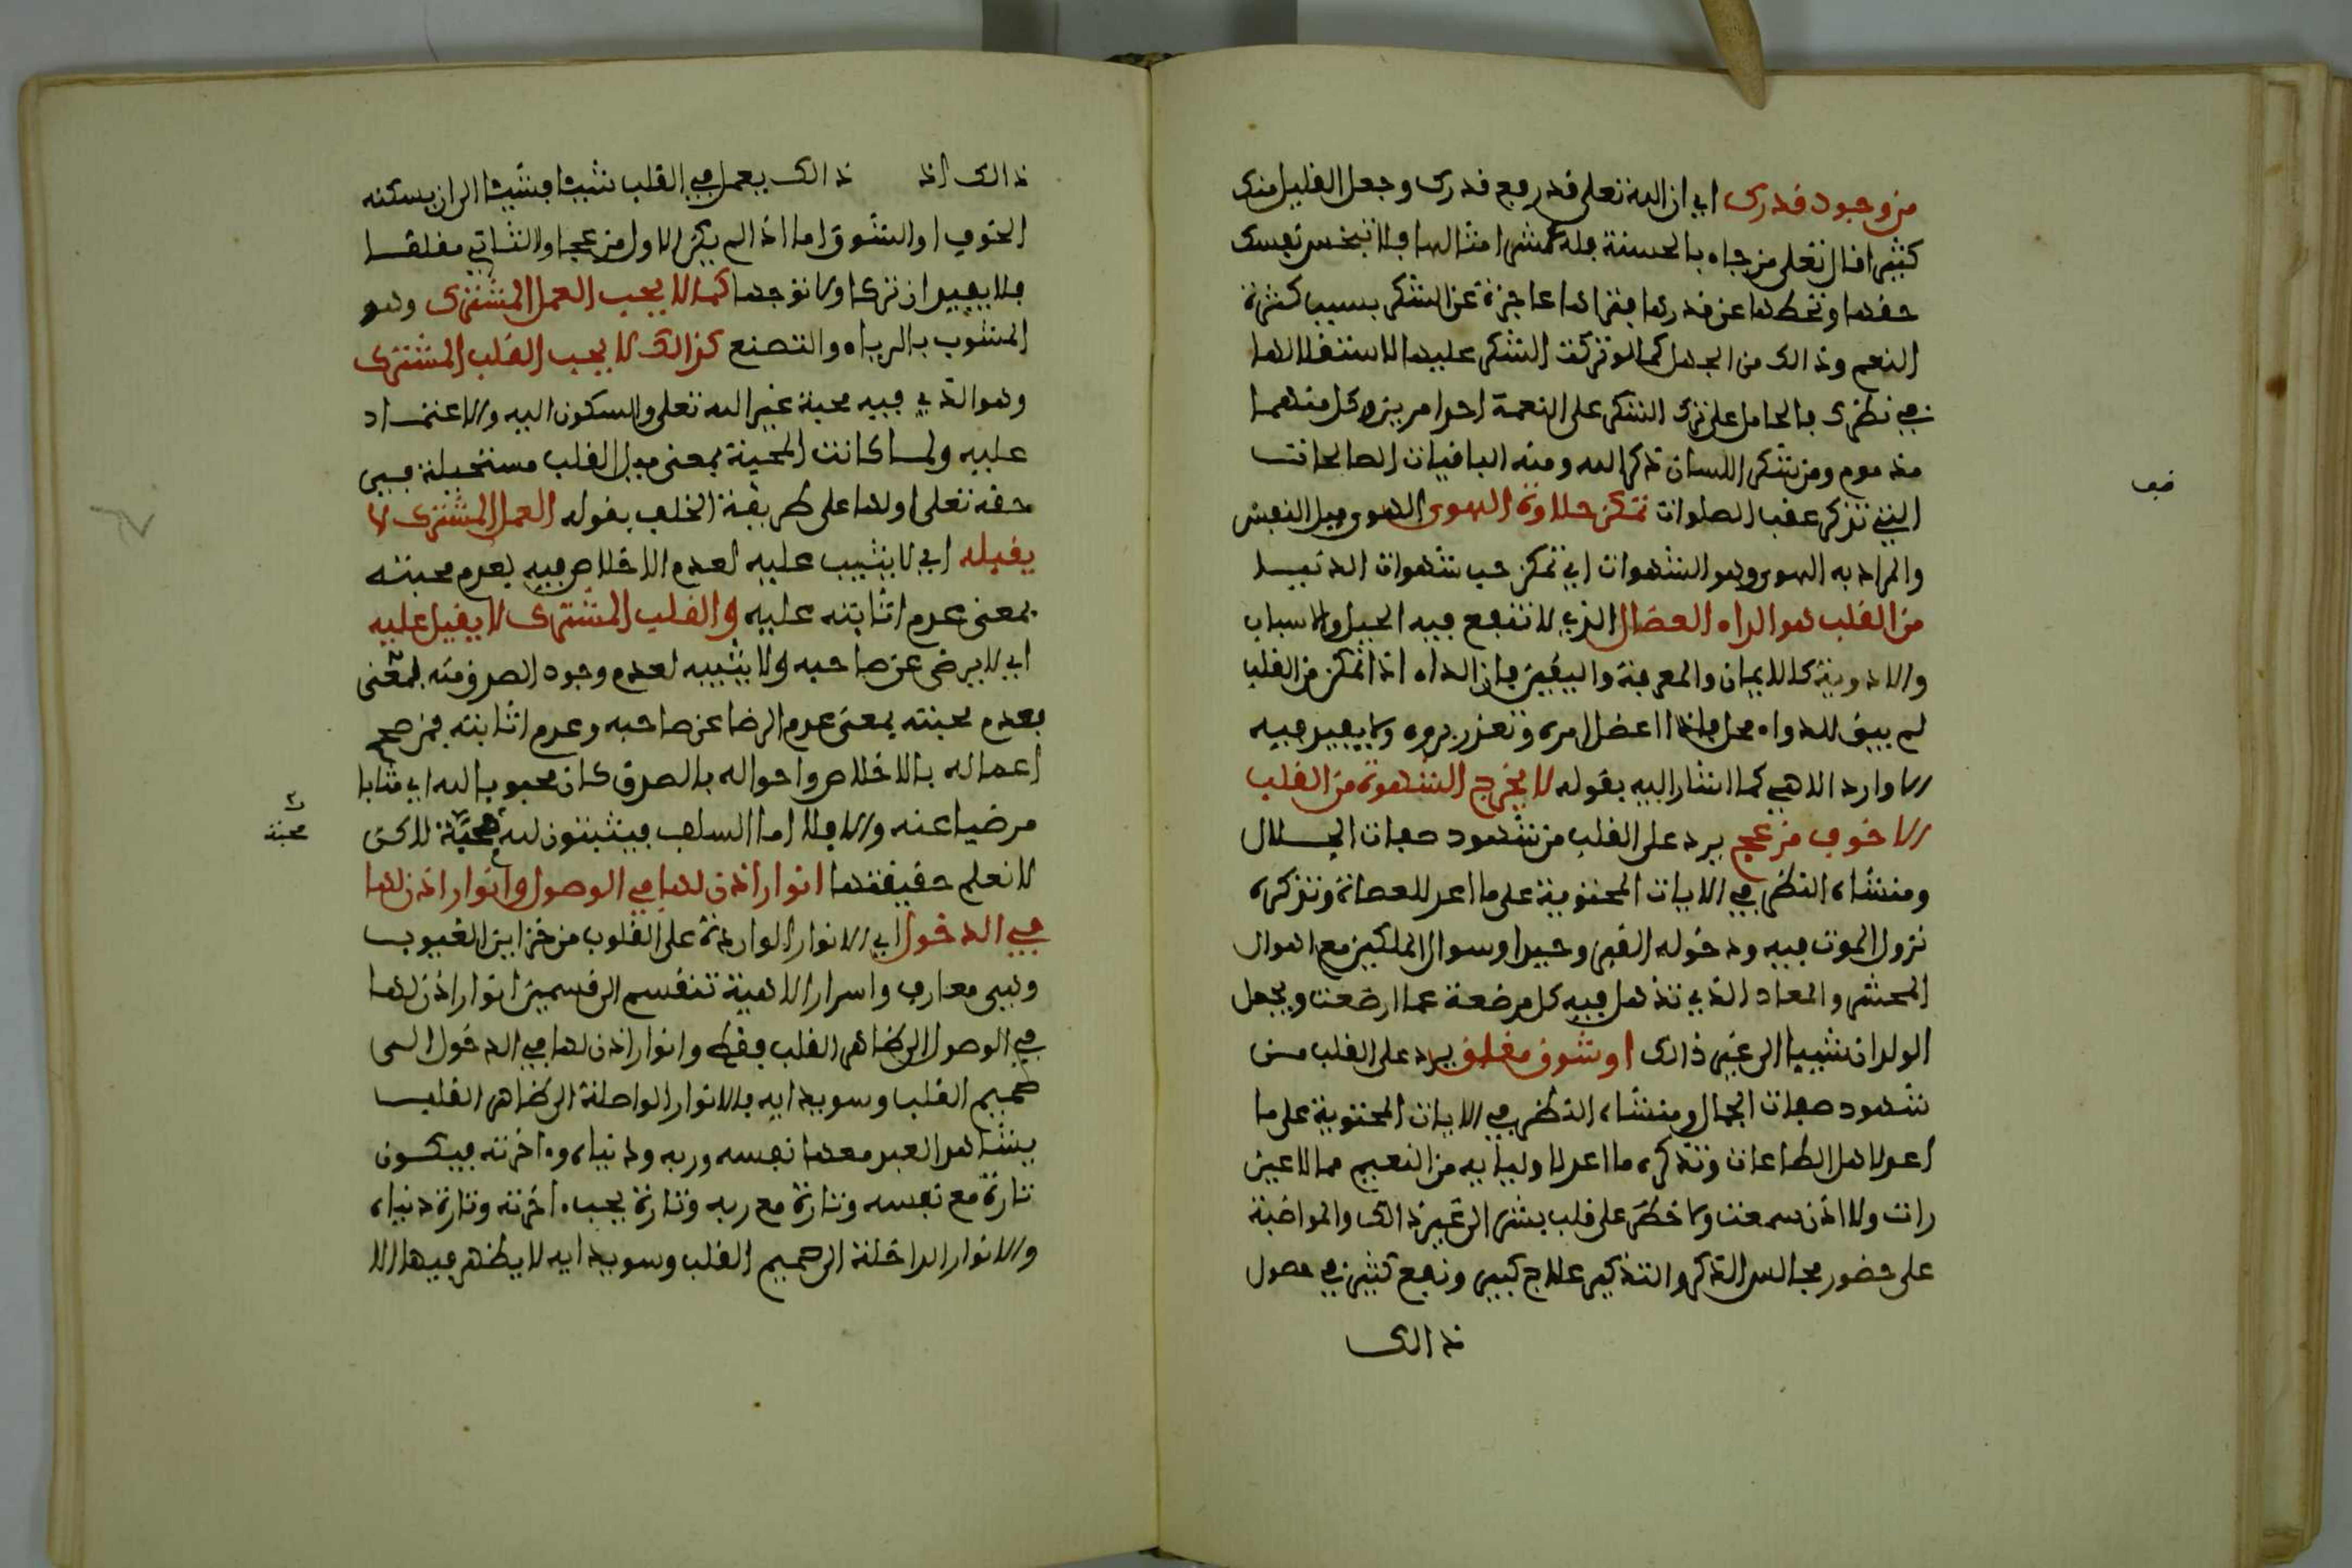 من وجود قدرك اي ان الله تعلى قد رفع قدرك وجعل القليل منك
كثيرا قال تعلى من جاء بالحسنة فله عشر امثالها فلا تبخس نفسك
حقها وتحطها عن قدرها فتراها عاجزة عن الشكر بسبب كثرة
النعم وذالك من الجهل كما لو تركت الشكر عليها لاستقلالها
في نظرك فالحامل على ترك الشكر على النعمة احد امرين وكل منهما
مذموم ومن شكر اللسان ذكر الله ومنه الباقيات الصالحات
التي تذكر عقب الصلوات تمكن حلاوة الهوى الهوى ميل النفس
والمراد به المهوى وهو الشهوات اي تمكن حب شهوات الدنيا
من القلب هو الداء العضال الذي لا تنفع فيه الحيل والاسباب
والادوية كالايمان والمعرفة واليقين فان الداء اذا تمكن من القلب
لم يبق للدواء محل فاذا اعضل امره وتعذر برؤه ولا يفيد فيه
الا وارد الاهي كما اشار اليه بقوله لا يخرج الشهوة من القلب
الا خوف مزعج يرد على القلب من شهود صفات الجلال
ومنشاه النظر في الايات المحتوية على ما اعد للعصاة وتذكره
نزول الموت فيه ودخوله القبر وحيدا وسوال الملكين مع اهوال
المحشر والمعاد الذي تذهل فيه كل مرضعة عما ارضعت ويجعل
الولدان شيبا الى غير ذالك او شوق مقلق يرد على القلب من
شهود صفات الجمال ومنشاه النظر في الايات المحتوية على ما
اعد لاهل الطاعات وتذكره ما اعد لاوليايه من النعيم مما لا عين
رات ولا اذن سمعت ولا خطر على قلب بشر الى غير ذالك والمواضبة
على حضور مجالس الذكر والتذكير علاج كبير ونفع كثير في حصول
ذالك
ذالك اذ ذالك يعمل في القلب شيئا فشيئا الى ان يسكنه
الخوف او الشوق اما اذا لم يكن الاول مزعجا ولا الثاني مقلقا
فلا يفيد ان تركا ولا توجها كما لا يحب العمل المشترك وهو
المشوب بالرياء والتصنع كذالك لا يحب القلب المشترك
وهو الذي فيه محبة غير الله تعلى والسكون اليه والاعتماد
عليه ولما كانت المحبة بمعنى ميل القلب مستحيلة في
حقه تعلى اولها على طريقة الخلف بقوله العمل المشترك لا
يقبله اي لا يثيب عليه لعدم الاخلاص فيه يعدم محبته
بمعنى عدم اثابته عليه والقلب المشترك لا يقبل عليه
اي لا يرضى عن صاحبه ولا يثيبه لعدم وجود الصدق منه بمعنى
يعدم محبته بمعنى عدم الرضا عن صاحبه وعدم اثابته فمن صحح
اعماله بالاخلاص واحواله بالصدق كان محبوبا لله اي مثابا
مرضيا عنه والا فلا اما السلف فيثبتون لله محبة لاكن
محبة
لا نعلم حقيقتها انوار اذن لها في الوصول وانوار اذن لها
في الدخول اي الانوار الواردة على القلوب من خزاين الغيوب
وهي معارف واسرار الاهية تنقسم الى قسمين انوار اذن لها
في الوصول الى ظاهر القلب فقط وانوار اذن لها في الدخول الى
صميم القلب وسويدايه فالانوار الواصلة الى ظاهر القلب
يشاهد العبد معها نفسه وربه ودنياه واخرته فيكون
تارة مع نفسه وتارة مع ربه وتارة يحب اخرته وتارة دنياه
والانوار الداخلة الى صميم القلب وسويدايه لا يظهر فيها الا